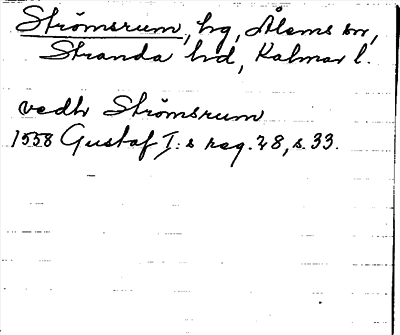 Strömsrum, hg, Ålems sn,
Stranda hd, Kalmar l.
vedtr Strömsrum
1558 Gustaf I:s reg. 28, s. 33.